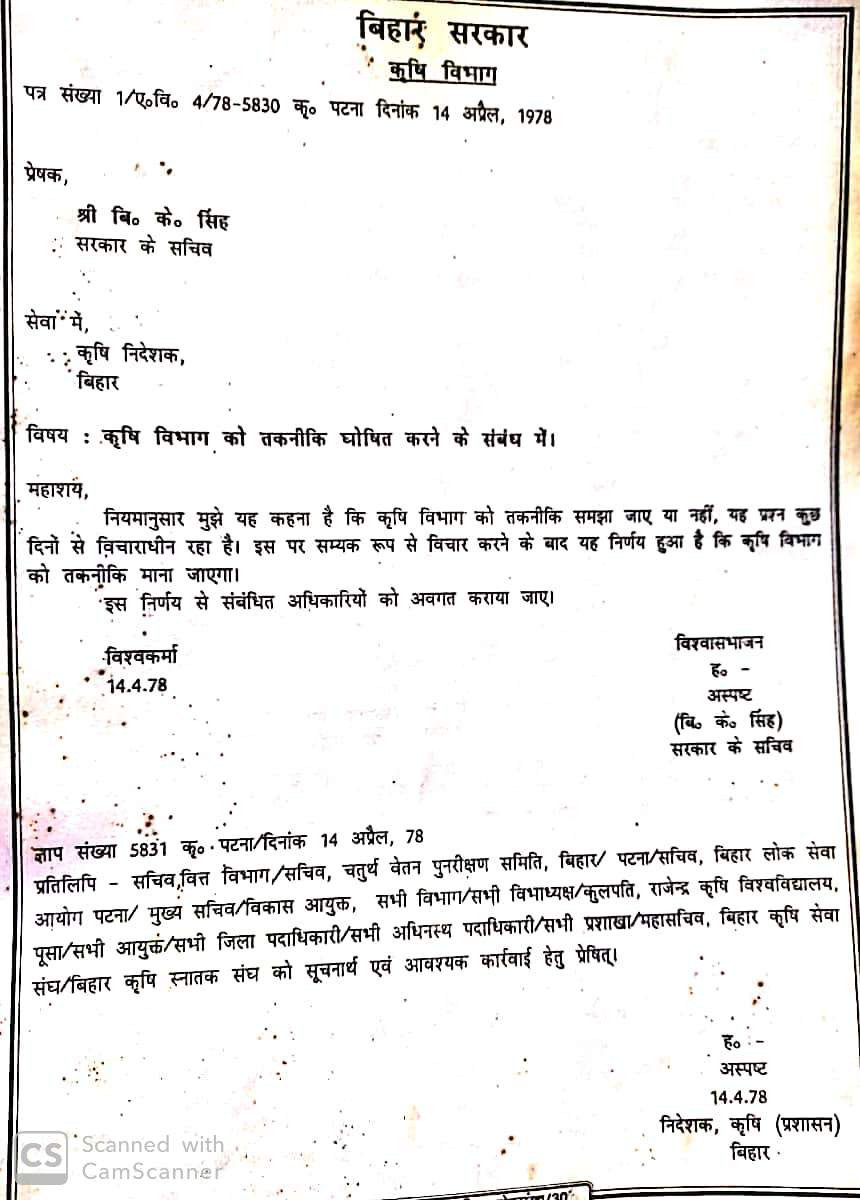 बिहार सरकार
कृषि विभाग
पत्र संख्या 1/ए०वि० 4/78-5830 कृ० पटना दिनांक 14 अप्रैल, 1978
प्रेषक,
श्री बि० के० सिंह
सरकार के सचिव
सेवा में,
कृषि निदेशक,
बिहार
विषय : कृषि विभाग को तकनीकि घोषित करने के संबंध में।
महाशय,
नियमानुसार मुझे यह कहना है कि कृषि विभाग को तकनीकि समझा जाए या नहीं, यह प्रश्न कुछ
दिनों से विचाराधीन रहा है। इस पर सम्यक रूप से विचार करने के बाद यह निर्णय हुआ है कि कृषि विभाग
को तकनीकि माना जाएगा।
इस निर्णय से संबंधित अधिकारियों को अवगत कराया जाए।
विश्वकर्मा
14.4.78
विश्वासभाजन
ह० -
अस्पष्ट
(बि० के० सिंह)
सरकार के सचिव
ज्ञाप संख्या 5831 कृ० पटना/दिनांक 14 अप्रैल, 78
प्रतिलिपि - सचिव,वित्त विभाग/सचिव, चतुर्थ वेतन पुनरीक्षण समिति, बिहार/ पटना/सचिव, बिहार लोक सेवा
आयोग पटना/ मुख्य सचिव/विकास आयुक्त, सभी विभाग/सभी विभाध्यक्ष/कुलपति, राजेन्द्र कृषि विश्वविद्यालय,
पूसा/सभी आयुक्त/सभी जिला पदाधिकारी/सभी अधिनस्थ पदाधिकारी/सभी प्रशाखा/महासचिव, बिहार कृषि सेवा
संघ/बिहार कृषि स्नातक संघ को सूचनार्थ एवं आवश्यक कार्रवाई हेतु प्रेषित्।
ह० -
अस्पष्ट
14.4.78
निदेशक, कृषि (प्रशासन)
बिहार
CS Scanned with
CamScanner